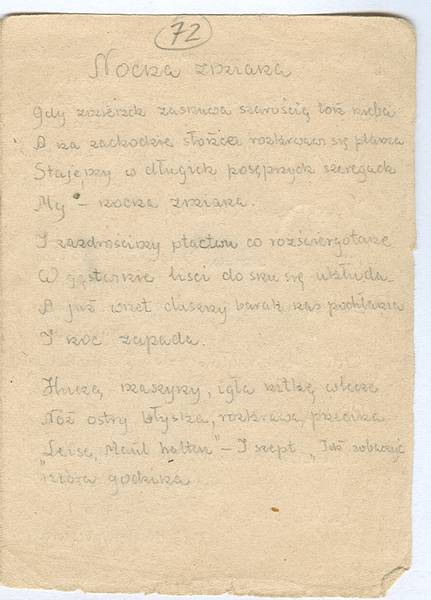 72
Nocna zmiana
Gdy zmierzch zasnuwa szarością toń nieba
A na zachodzie słońce rozkrwawi się plama
Stajemy w długich posępnych szeregach
My – nocna zmiana.
I zazdrościmy ptactwu co rozświergotane
W gęstwinie liści do snu się układa
A już wnet duszny barak nas pochłania
I noc zapada.
Huczą maszyny, igła nitkę wlecze
Nóż ostry błyska, rozkrawa, przecina
"Leise, Maul halten" – I szept „Już
"która godzina